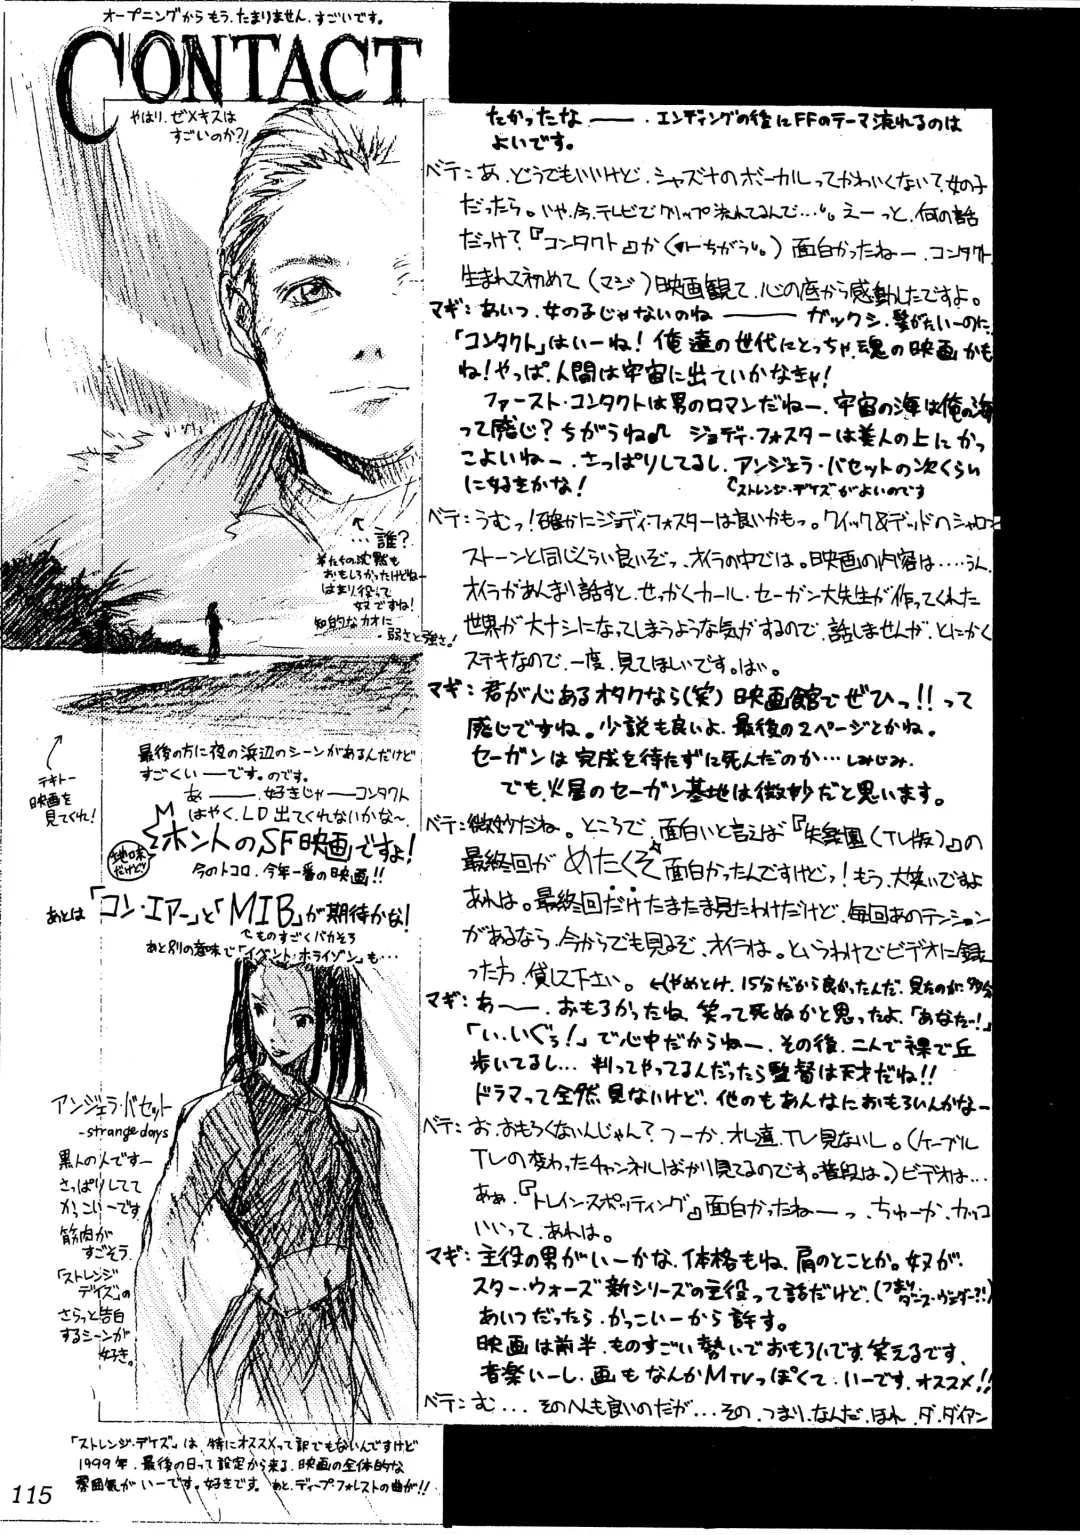 オープニングからもう、たまりません、すごいです。
CONTACT
やはり、ゼメキスは
すごいのか?!
…誰?
羊たちの沈黙も
おもしろかったけどねー
はまり役って
奴ですね!
知的なカオに
・弱さと強さ!
テキトー
映画を
見てくれ!
最後の方に夜の浜辺のシーンがあるんだけど
すごくいーです。のです。
あ――、好きじゃーコンタクト
はやく、LD出てくれないかな~、
ホントのSF映画ですよ!
地味
だけど
今のトコロ、今年一番の映画!!
あとは「コン・エアー」と「MIB」が期待かな!
ものすごくバカそう
あと別の意味で「イベント・ホライゾン」も…
アンジェラ・バセット
-strange days
黒人の人ですー
さっぱりしてて
かっこいーです
筋肉が
すごそう、
「ストレンジ
デイズ」の
さらっと告白
するシーンが
好き。
「ストレンジ・デイズ」は、特にオススメって訳でもないんですけど
1999年、最後の日って設定から来る、映画の全体的な
雰囲気がいーです。好きです。あと、ディープ・フォレストの曲が!!
115
たかったな――、エンディングの後にFFのテーマ流れるのは
よいです。
ベテ:あ、どうでもいいけど、シャズナのボーカルってかわいくない?、女の子
だったら。いや、今、テレビでクリップ流れてるんで…。えーっと、何の話
だっけ?『コンタクト』か(ちがう)面白かったねー、コンタクト
生まれて初めて(マジ)映画観て、心の底から感動したですよ。
マギ:あいつ、女の子じゃないのね――ガックシ、髪がたいーのに、
「コンタクト」はいーね!俺達の世代にとっちゃ、魂の映画かも
ね!やっぱ、人間は宇宙に出ていかなきゃ!
ファースト・コンタクトは男のロマンだねー、宇宙の海は俺の海
って感じ?ちがうね♪ ジョディ・フォスターは美人の上にかっ
こよいねー、さっぱりしてるし、アンジェラ・バセットの次くらい
に好きかな!
ストレンジ・デイズがよいのです
ベテ:うむっ!確かにジョディ・フォスターは良いかもっ。クイック&デッドのシャロン
ストーンと同じくらい良いぞっ、オイラの中では。映画の内容は……うん、
オイラがあんまり話すと、せっかくカール・セーガン大先生が作ってくれた
世界が大ナシになってしまうような気がするので、話しませんが、とにかく
ステキなので、一度、見てほしいです。はい。
マギ:君が心あるオタクなら(笑)映画館でぜひっ!!って
感じですね。小説も良いよ、最後の2ページとかね。
セーガンは完成を待たずに死んだのか…しみじみ、
でも、火星のセーガン基地は微妙だと思います。
ベテ:微妙だね。ところで、面白いと言えば『失楽園(TV版)』の
最終回がめたくそ面白かったんですけどっ!もう、大笑いですよ
あれは。最終回だけたまたま見たわけだけど、毎回あのテンション
があるなら、今からでも見るぞ、オイラは。というわけでビデオに録
った方、貸して下さい。←(やめとけ、15分だから良かったんだ、見たのが、多分
マギ:あ――、おもろかったね、笑って死ぬかと思ったよ、「あなた…!」
「い、いぐぅ!」で心中だからねー、その後、二人で裸で丘
歩いてるし…判ってやってるんだったら監督は天才だね!!
ドラマって全然、見ないけど、他のもあんなにおもろいんかなー
ベテ:お、おもろくないんじゃん?つーか、オレ達、TV見ないし。(ケーブル
TVの変わったチャンネルばかり見てるのです。普段は。)ビデオは…
あぁ、『トレイン・スポッティング』面白かったねーっ、ちゅーか、カッコ
いいって、あれは。
マギ:主役の男がいーかな、体格もね、肩のとことか。奴が
スター・ウォーズ新シリーズの主役って話だけど、
あいつだったら、かっこいーから許す。
映画は前半、ものすごい勢いでおもろいです、笑えるです、
音楽いーし、画もなんかMTVっぽくて、いーです、オススメ!!
ベテ:む…、そのへんも良いのだが…その、つまり、なんだ、ほれ、ダ、ダイアン